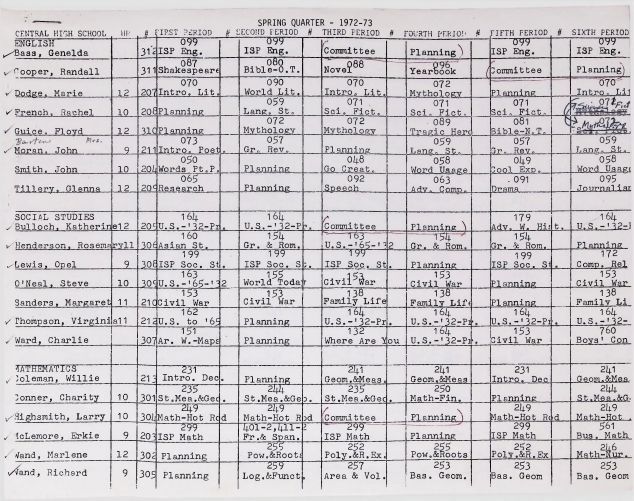 SPRING QUARTER - 1972-73
CENTRAL HIGH SCHOOL HR # FIRST PERIOD # SECOND PERIOD # THIRD PERIOD # FOURTH PERIOD # FIFTH PERIOD # SIXTH PERIOD
ENGLISH 099 099 099 099
Bass, Genelda 312 ISP Eng. ISP Eng. Committee Planning ISP Eng. ISP Eng.
087 080 088 096
Cooper, Randall 311 Shakespeare Bible-O.T. Novel Yearbook Committee Planning
070 090 070 072 070
Dodge, Marie 12 207 Intro. Lit. World Lit. Intro. Lit. Mythology Planning Intro. Li
059 071 071 071
French, Rachel 10 208 Planning Lang. St. Sci. Fict. Sci. Fict. Sci. Fict.
072 072 089 081
Guice, Floyd 12 310 Planning Mythology Mythology Tragic Hero Bible-N.T.
073 057 059 057 059
Moran, John 9 211 Intro. Poet. Gr. Rev. Planning Lang. St. Gr. Rev. Lang. St.
050 048 058 049 058
Smith, John 10 204 Words Pt.P. Planning Go Creat. Word Usage Cool Exp. Word Usag
065 092 063 091 095
Tillery, Glenna 12 209 Research Planning Speech Adv. Comp. Drama Journalis
SOCIAL STUDIES 164 164 179 164
Bulloch, Katherine 12 205 U.S.-'32-Pr. U.S.-'32-P Committee Planning Adv. W. Hist. U.S.-'32-
154 154 163 154 154
Henderson, Rosemary 11 306 Asian St. Gr. & Rom. U.S.-'65-'32 Gr. & Rom. Gr. & Rom. Planning
199 199 199 199 172
Lewis, Opel 9 308 ISP Soc. St. ISP Soc. St. ISP Soc. St. Planning ISP Soc. St. Comp. Rel
163 155 153 153 153
O'Neal, Steve 10 309 U.S.-'65-'32 World Today Civil War Civil War Planning Civil War
153 153 138 138 138
Sanders, Margaret 11 210 Civil War Civil War Family Life Family Life Planning Family Li
162 164 164 164 164
Thompson, Virginia 11 212 U.S. to '65 Planning U.S.-'32-Pr. U.S.-'32-Pr. U.S.-'32-Pr. U.S.-'32-
151 132 164 153 760
Ward, Charlie 307 Ar. W.-Maps Planning Where Are You U.S.-'32-Pr. Civil War Boys' Con
MATHEMATICS 231 241 241 231 241
Coleman, Willie 213 Intro. Dec. Planning Geom.&Meas. Geom.&Meas. Intro. Dec Geom.&Mea
235 244 235 250 244
Conner, Charity 10 301 St.Mea.&Geo. St.Mea.&Geo. St.Mea.&Geo. Math-Fin. Planning St.Mea.&G
249 249 249 249
Highsmith, Larry 10 304 Math-Hot Rod Math-Hot Rod Committee Planning Math-Hot Rod Math-Hot
299 401-2,411-2 299 299 561
McLemore, Erkie 9 203 ISP Math Fr.& Span. ISP Math Planning ISP Math Bus. Math
255 252 255 252 246
Wand, Marlene 12 302 Planning Pow.&Roots Poly.&R.Ex Pow.&Roots Poly.&R.Ex Math-Nur.
259 257 253 253 253
Wand, Richard 9 305 Planning Log.&Funct. Area & Vol. Bas. Geom. Bas. Geom Bas. Geom